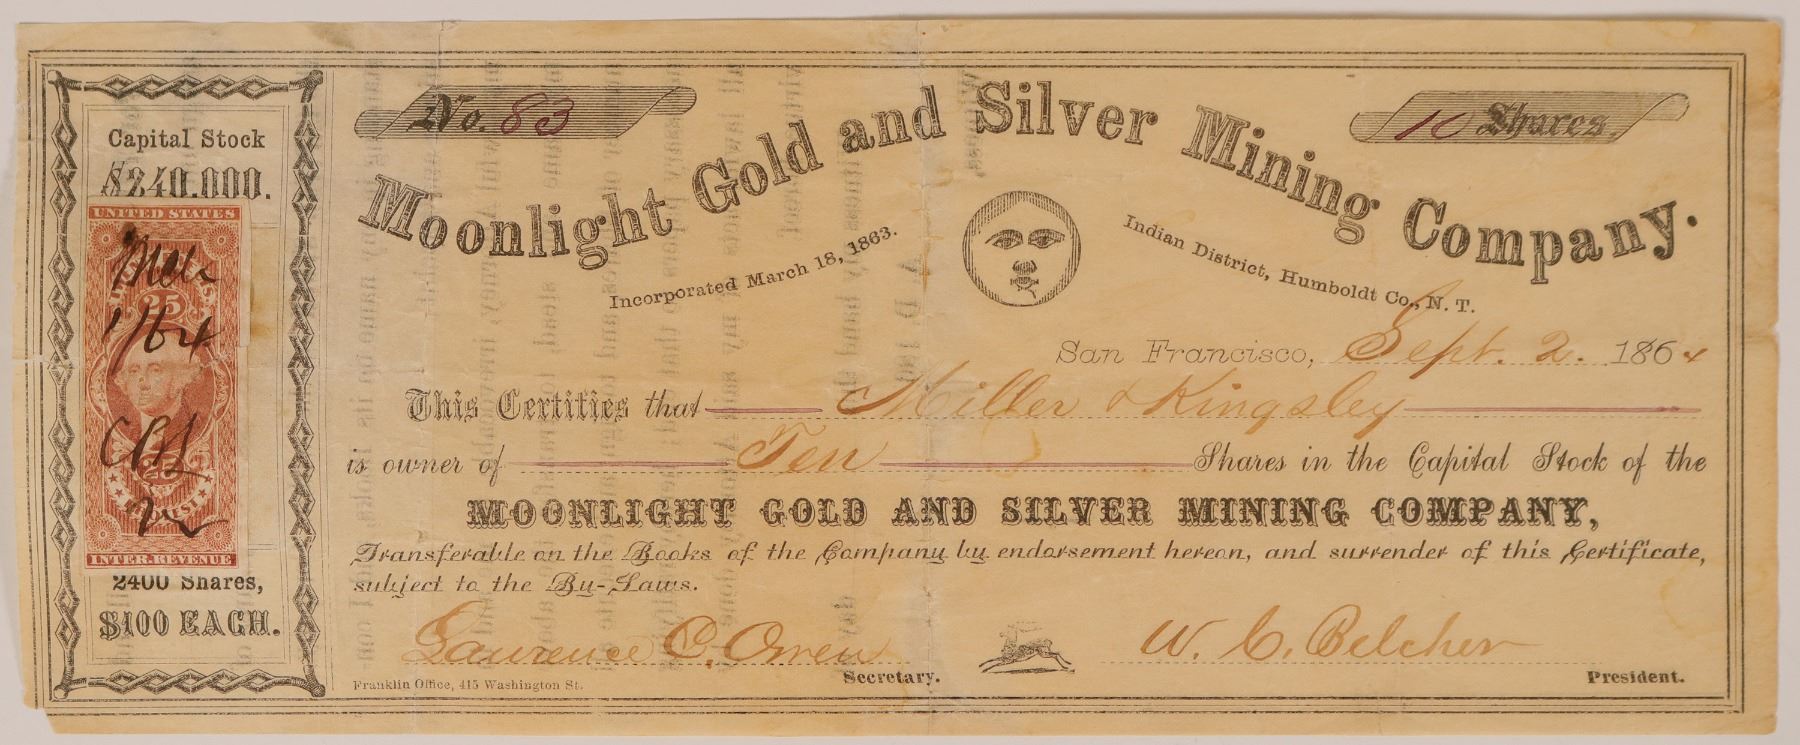 Capital Stock
$240.000.
UNITED STATES
25
25
INTER. REVENUE
2400 Shares,
$100 EACH.
No. 83
10 Shares.
Moonlight Gold and Silver Mining Company.
Incorporated March 18, 1863.
Indian District, Humboldt Co., N. T.
San Francisco, Sept. 2. 1864
This Certifies that Miller & Kingsley
is owner of Ten Shares in the Capital Stock of the
MOONLIGHT GOLD AND SILVER MINING COMPANY,
Transferable on the Books of the Company by endorsement hereon, and surrender of this Certificate,
subject to the By-Laws.
Laurence C. Owen
Secretary.
W. C. Belcher
President.
Franklin Office, 415 Washington St.